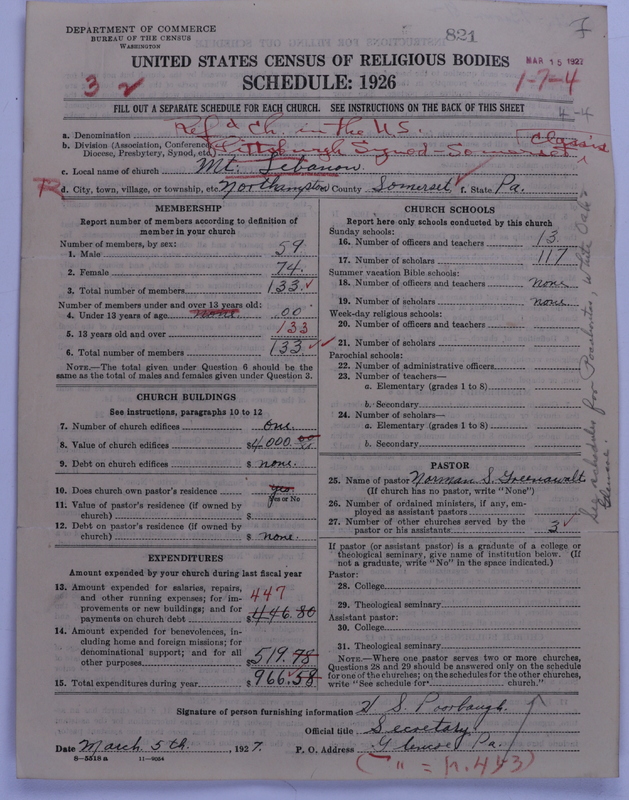 DEPARTMENT OF COMMERCE
BUREAU OF THE CENSUS
WASHINGTON
821
MAR 15 1927
UNITED STATES CENSUS OF RELIGIOUS BODIES
SCHEDULE: 1926
3
1-7-4
4-4
FILL OUT A SEPARATE SCHEDULE FOR EACH CHURCH. SEE INSTRUCTIONS ON THE BACK OF THIS SHEET
a. Denomination Ref'd Ch. in the U.S.
b. Division (Association, Conference, Diocese, Presbytery, Synod, etc.) Pittsburgh Synod - Somerset Classis
c. Local name of church Mt. Lebanon
R d. City, town, village, or township, etc. Northampton County Somerset f. State Pa.
MEMBERSHIP
Report number of members according to definition of
member in your church
Number of members, by sex:
1. Male 59
2. Female 74.
3. Total number of members 133
Number of members under and over 13 years old:
4. Under 13 years of age none 00
5. 13 years old and over 133
6. Total number of members 133
NOTE.—The total given under Question 6 should be
same as the total of males and females given under Question 3.
CHURCH BUILDINGS
See instructions, paragraphs 10 to 12
7. Number of church edifices one
8. Value of church edifices $4000.00
9. Debt on church edifices $ none.
10. Does church own pastor's residence yes
Yes or No
11. Value of pastor's residence (if owned by
church) $
12. Debt on pastor's residence (if owned by
church) $ none.
EXPENDITURES
Amount expended by your church during last fiscal year
13. Amount expended for salaries, repairs,
and other running expenses; for im-
provements or new buildings; and for
payments on church debt 447 $446.80
14. Amount expended for benevolences, in-
cluding home and foreign missions; for
denominational support; and for all
other purposes $519.78
15. Total expenditures during year $966.58
CHURCH SCHOOLS
Report here only schools conducted by this church
Sunday schools:
16. Number of officers and teachers 13
17. Number of scholars 117
Summer vacation Bible schools:
18. Number of officers and teachers none
19. Number of scholars none
Week-day religious schools:
20. Number of officers and teachers
21. Number of scholars
Parochial schools:
22. Number of administrative officers
23. Number of teachers—
a. Elementary (grades 1 to 8)
b. Secondary
24. Number of scholars—
a. Elementary (grades 1 to 8)
b. Secondary
PASTOR
25. Name of pastor Norman S. Greenawalt
(If church has no pastor, write "None")
26. Number of ordained ministers, if any, em-
ployed as assistant pastors
27. Number of other churches served by the
pastor or his assistants 3
If pastor (or assistant pastor) is a graduate of a college or
theological seminary, give name of institution below. (If
not a graduate, write "No" in the space indicated.)
Pastor:
28. College
29. Theological seminary
Assistant pastor:
30. College
31. Theological seminary
NOTE.—Where one pastor serves two or more churches,
Questions 28 and 29 should be answered only on the schedule
for one of the churches; on the schedules for the other churches,
write "See schedule for church."
See schedules for Pocahontas, White Oak & Glencoe.
Signature of person furnishing information S. Poorbaugh.
Official title Secretary
Date March 5th, 1927. P. O. Address Glencoe Pa.
8-5518 a 11-9054